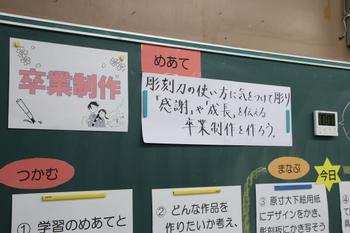 卒業制作
めあて
彫刻刀の使い方に気をつけて彫り
「感謝」や「成長」を伝える
卒業制作を作ろう。
つかむ
まなぶ
今日
① 学習のめあてと
② どんな作品を
作りたいか考え、
③ 原寸大下絵用紙
にデザインをかき、
彫刻板にかき写そう